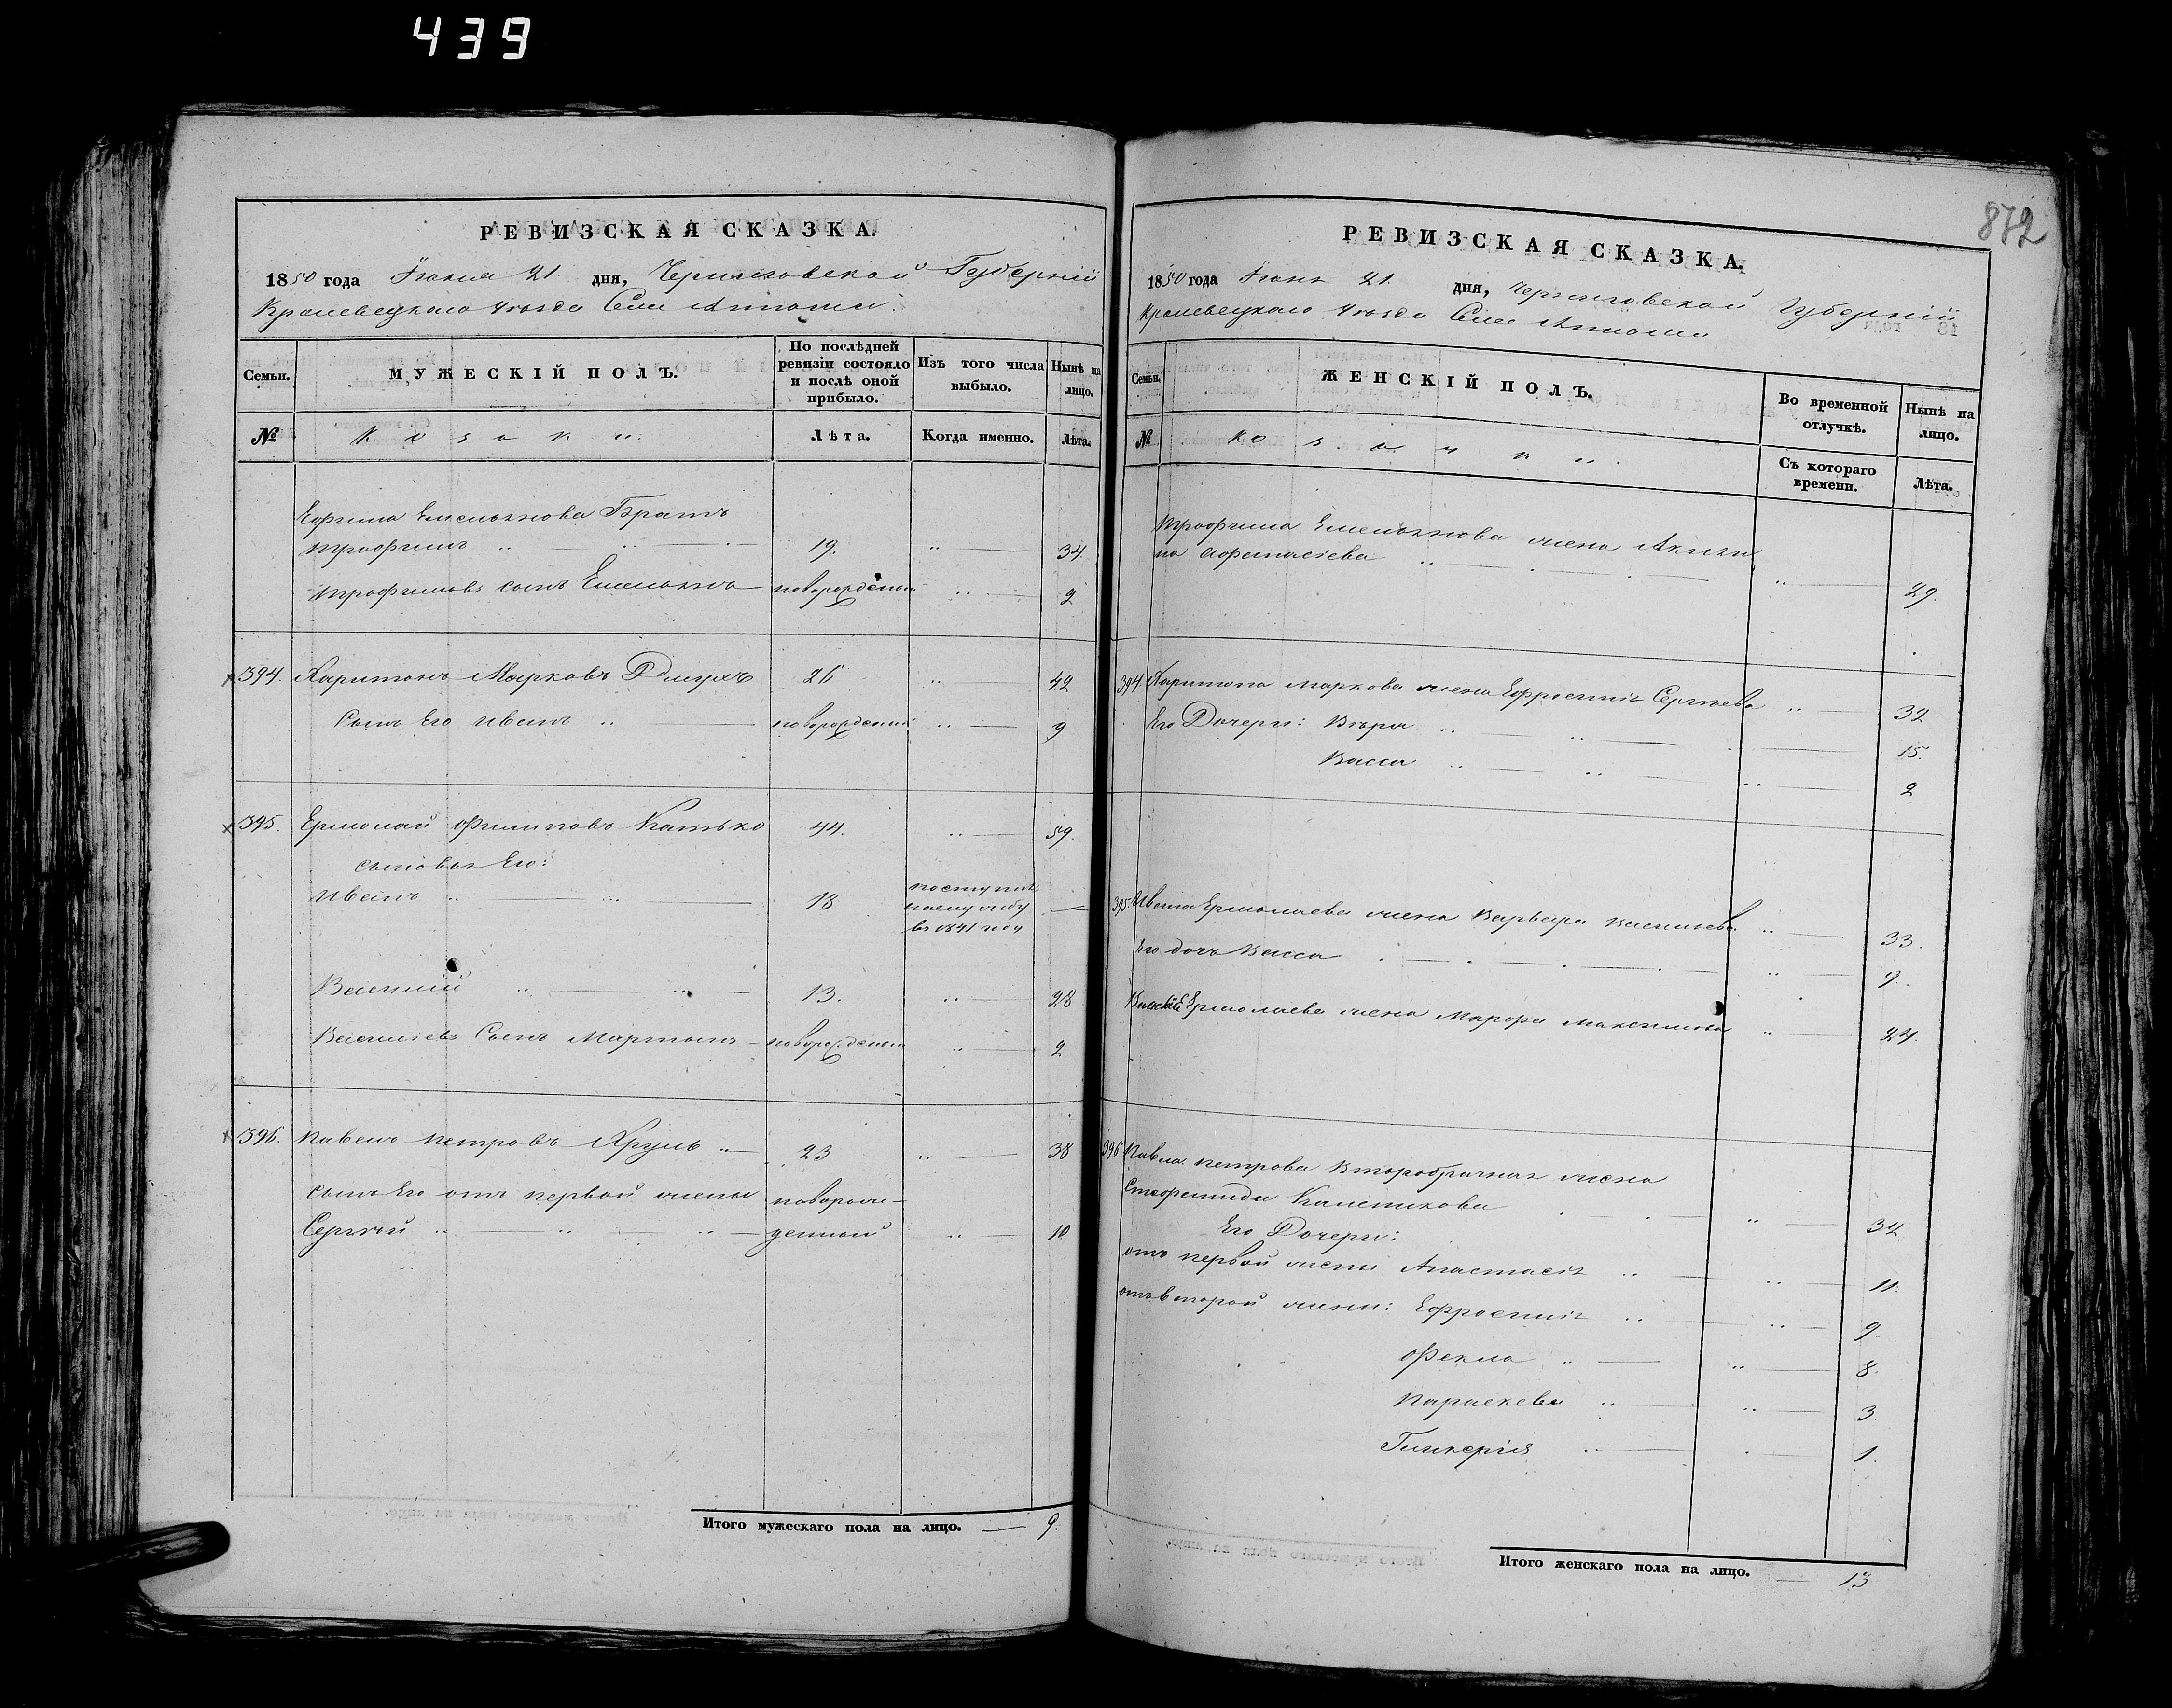 439
РЕВИЗСКАЯ СКАЗКА.
1850 года Іюня 21 дня, Черниговской Губерніи
Кролевецкаго уѣзда Села
Семьи.
МУЖЕСКІЙ ПОЛЪ.
По послѣдней ревизіи состояло и послѣ оной прибыло.
Изъ того числа выбыло.
Нынѣ на лицо.
№
Козаки
Лѣта.
Когда именно.
Лѣта.
Ефима Емельянова Братъ
Трофимъ 19. 34.
Трофимовъ сынъ Емельянъ новорожденый 2
394. Харитонъ Марковъ 26 42
Сынъ Его Иванъ новорожденый 9
395. Ермолай Филиповъ Катько 44. 59.
Сыновья Его:
Иванъ 18 поступилъ наслужбу въ 1841 году
Василий 13. 28
Васильевъ Сынъ Мартынъ новорожденый 2
396. Павелъ Петровъ Хруль 23 38
Сынъ Его отъ первой жены новорож-
Сергѣй денный 10
Итого мужескаго пола на лицо. 9.
872
РЕВИЗСКАЯ СКАЗКА.
1850 года Іюня 21 дня, Черниговской Губерніи
Кролевецкаго уѣзда Села
Семьи.
ЖЕНСКІЙ ПОЛЪ.
Во временной отлучкѣ.
Нынѣ на лицо.
№
Козачки.
Съ котораго времени.
Лѣта.
Трофима Емельянова жена Акили
на Афанасіева 29.
394. Харитона Маркова жена Ефросинія Сергѣева 32
Его Дочери: Вѣра 15.
Васса 2
395. Ивана Ермолаева жена Варвара Васильева 33.
Его дочь Васса 9.
Василія Ермолаева жена Марфа Максимова 24.
396 Павла Петрова второбрачная жена
Стефанида Калиникова 32
Его Дочери:
отъ первой жены Анастасія 11.
отъ второй жены: Ефросинія 9.
Фекла 8.
Параскева 3.
Гликерія 1.
Итого женскаго пола на лицо. 13